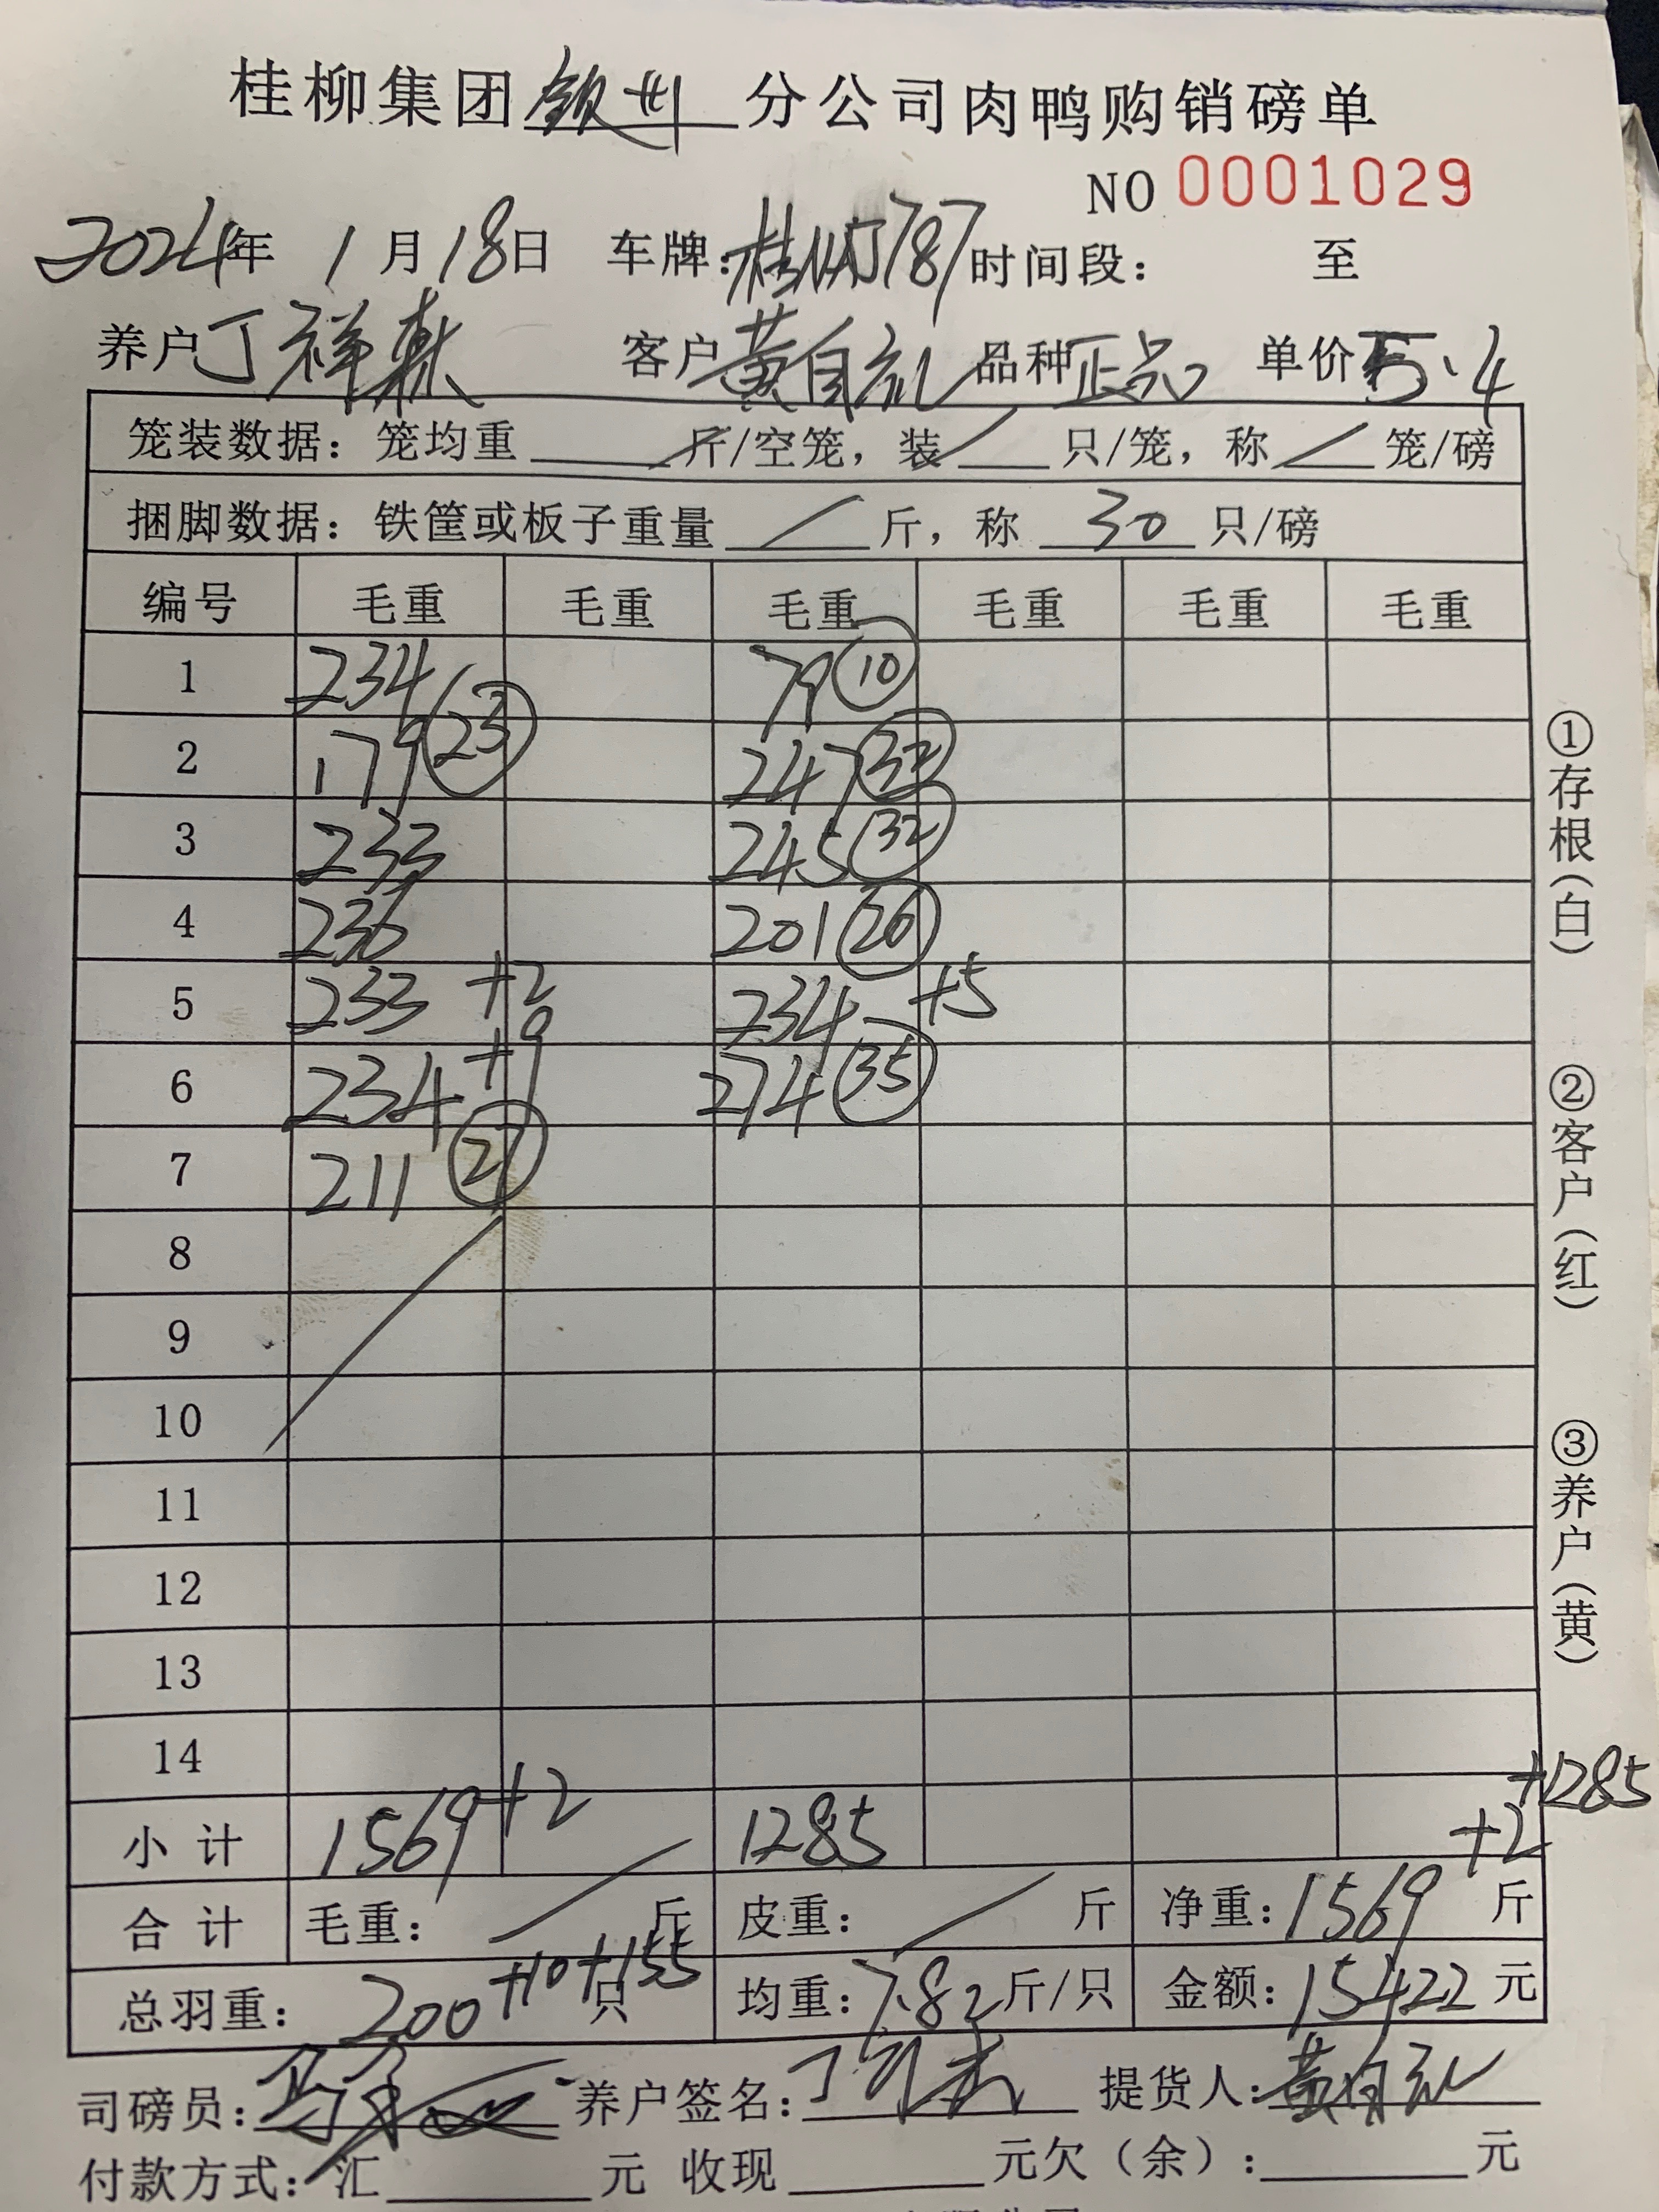 桂柳集团钦州分公司肉鸭购销磅单
NO 0001029
2024年 1月18日 车牌:桂NA5787 时间段: 至
养户 丁祥 客户 黄自礼 品种 正品 单价 5.4
笼装数据: 笼均重 / 斤/空笼, 装 / 只/笼, 称 / 笼/磅
捆脚数据: 铁筐或板子重量 / 斤, 称 30 只/磅
编号 毛重 毛重 毛重 毛重 毛重 毛重
1 234 79 (10)
2 179 (23) 247 (32)
3 233 245 (32)
4 236 201 (26)
5 233 +2 234 +5
6 234 +9 274 (35)
7 211 (27)
8
9
10
11
12
13
14
小计 1569 +2 1285 +2 +1285
合计 毛重: / 斤 皮重: / 斤 净重: 1569 斤
总羽重: 200 +10 +155 只 均重: 7.82 斤/只 金额: 15422 元
司磅员: 养户签名: 丁 提货人: 黄自礼
付款方式: 汇 元 收现 元欠(余): 元
①存根(白)
②客户(红)
③养户(黄)